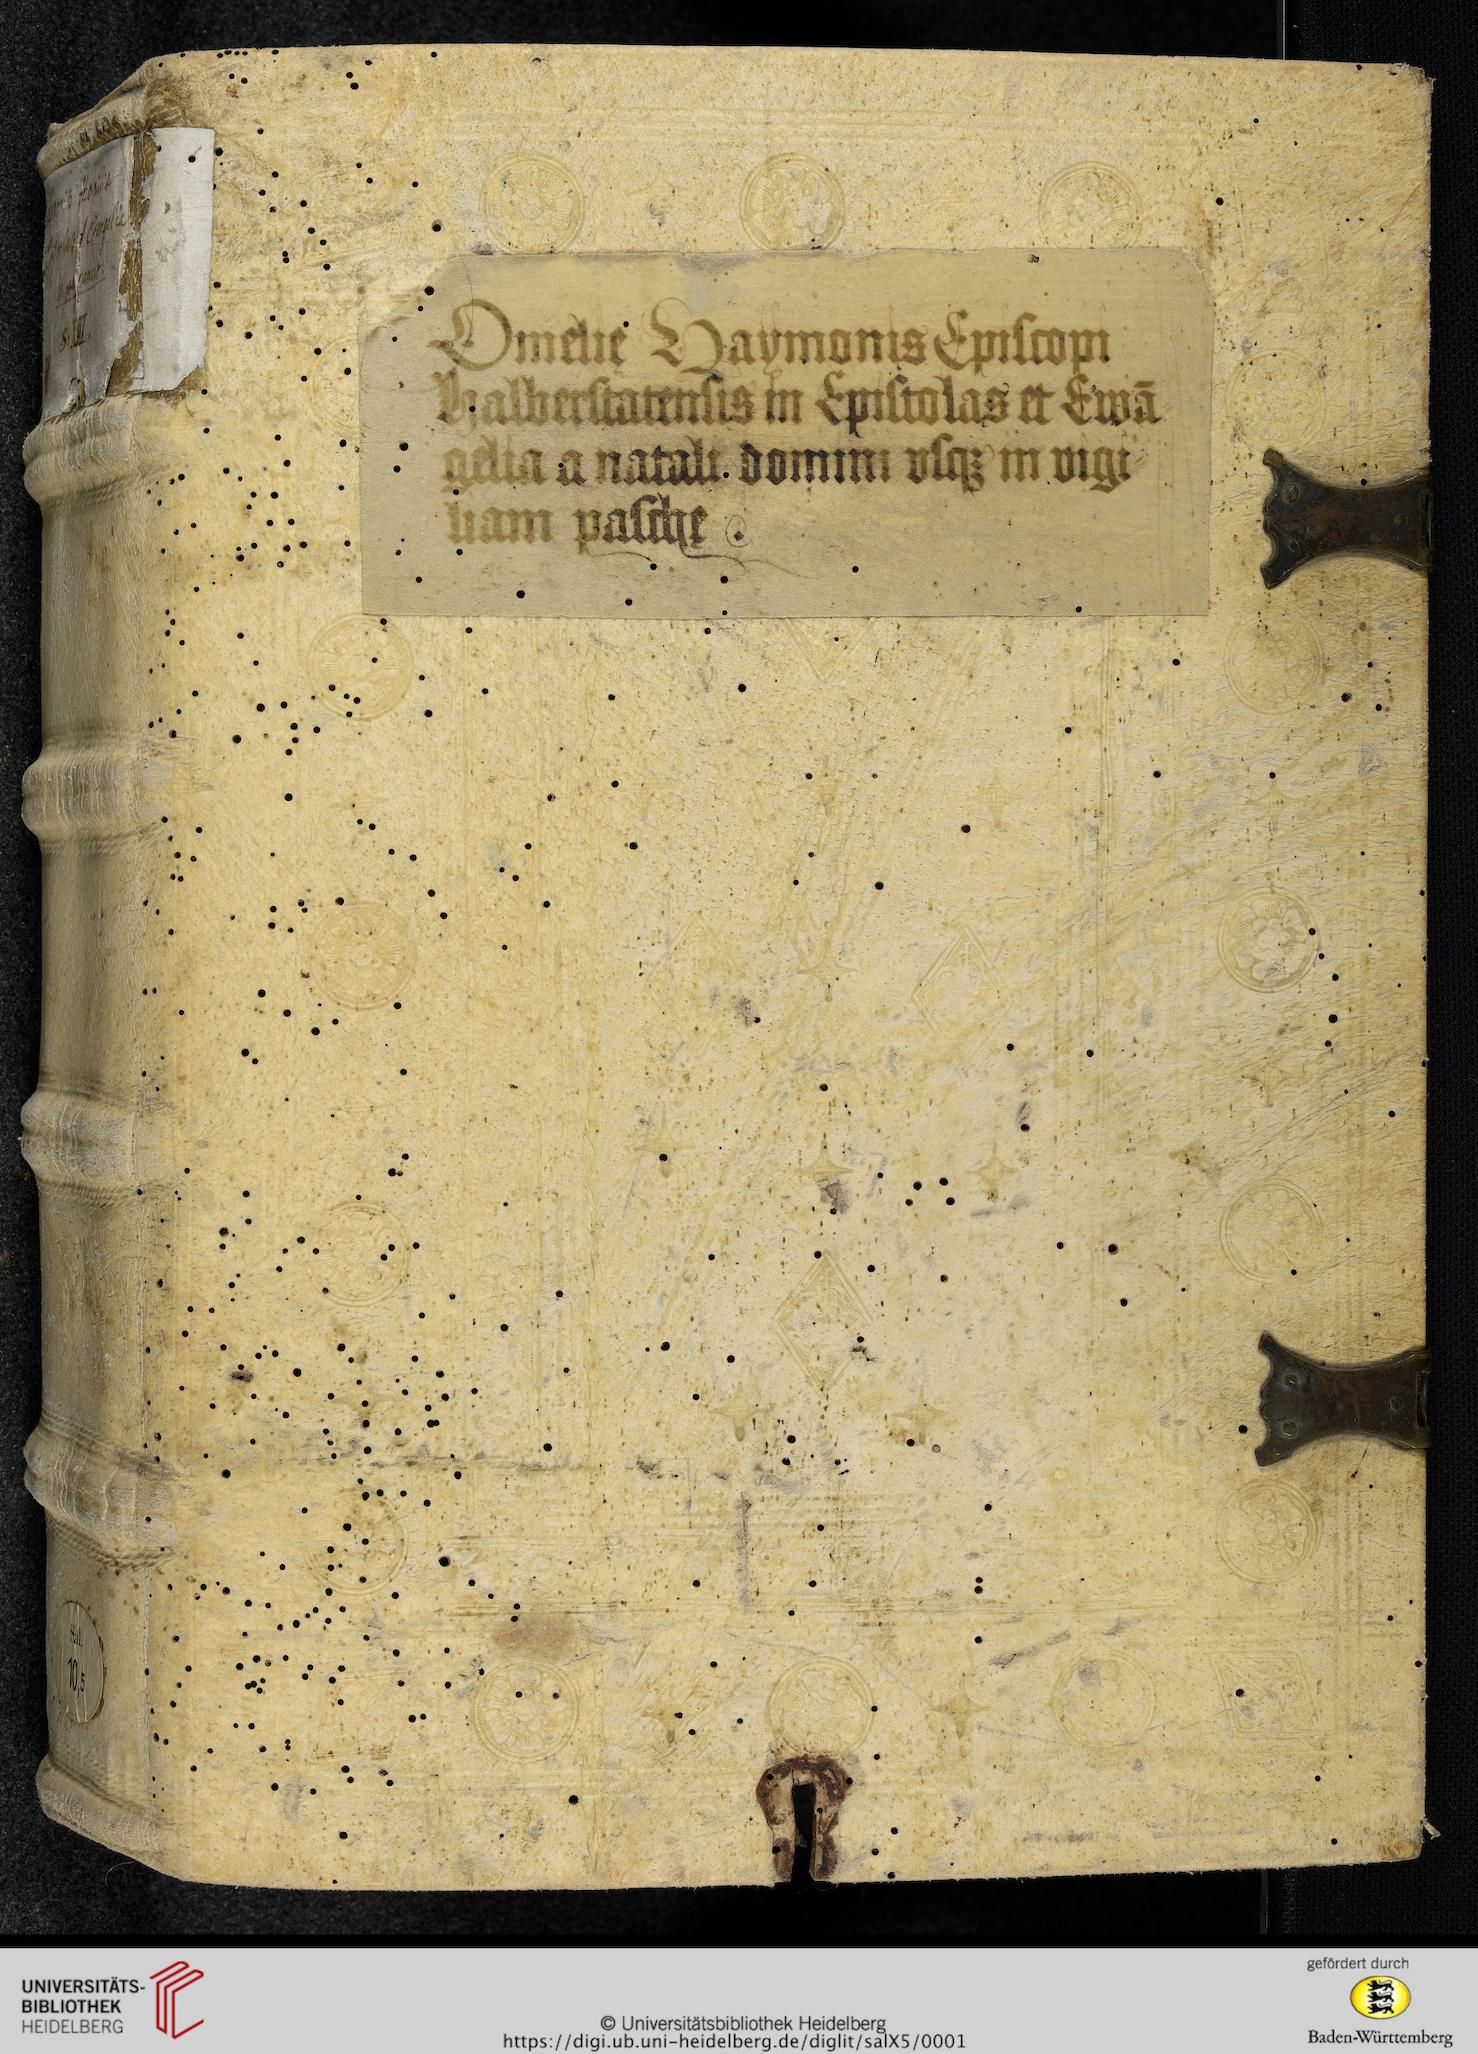 Omelię Haymonis Episcopi
halberstatensis in Epistolas et Ewā
gelia a natali domini vsqꝫ in vigi
liam pasche
Sal.
10,5
UNIVERSITÄTS-
BIBLIOTHEK
HEIDELBERG
© Universitätsbibliothek Heidelberg
https://digi.ub.uni-heidelberg.de/diglit/salX5/0001
gefördert durch
Baden-Württemberg